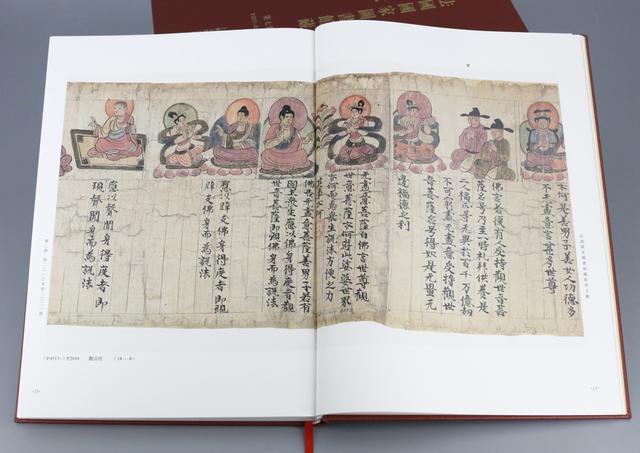 法國國家圖書館藏
云何是善男子善女人功德多
不无盡意言甚多世尊
佛言若復有人受持觀世音菩
薩名号乃至一時礼拜供養是
二人福正等无異於百千万億劫
不可窮盡无盡意受持觀世
音菩薩名号得如是无量无
邊福德之利
无盡意菩薩白佛言世尊觀
世音菩薩云何遊此娑婆世界
云何而為衆生說法方便之力
其事云何
佛告无盡意善男子若有
國土衆生應以佛身得度者觀
世音菩薩即現佛身而為說法
應以辟支佛身得度者即現
辟支佛身而為說法
應以聲聞身得度者即
現聲聞身而為說法
P.2010 觀音經 (14—4)